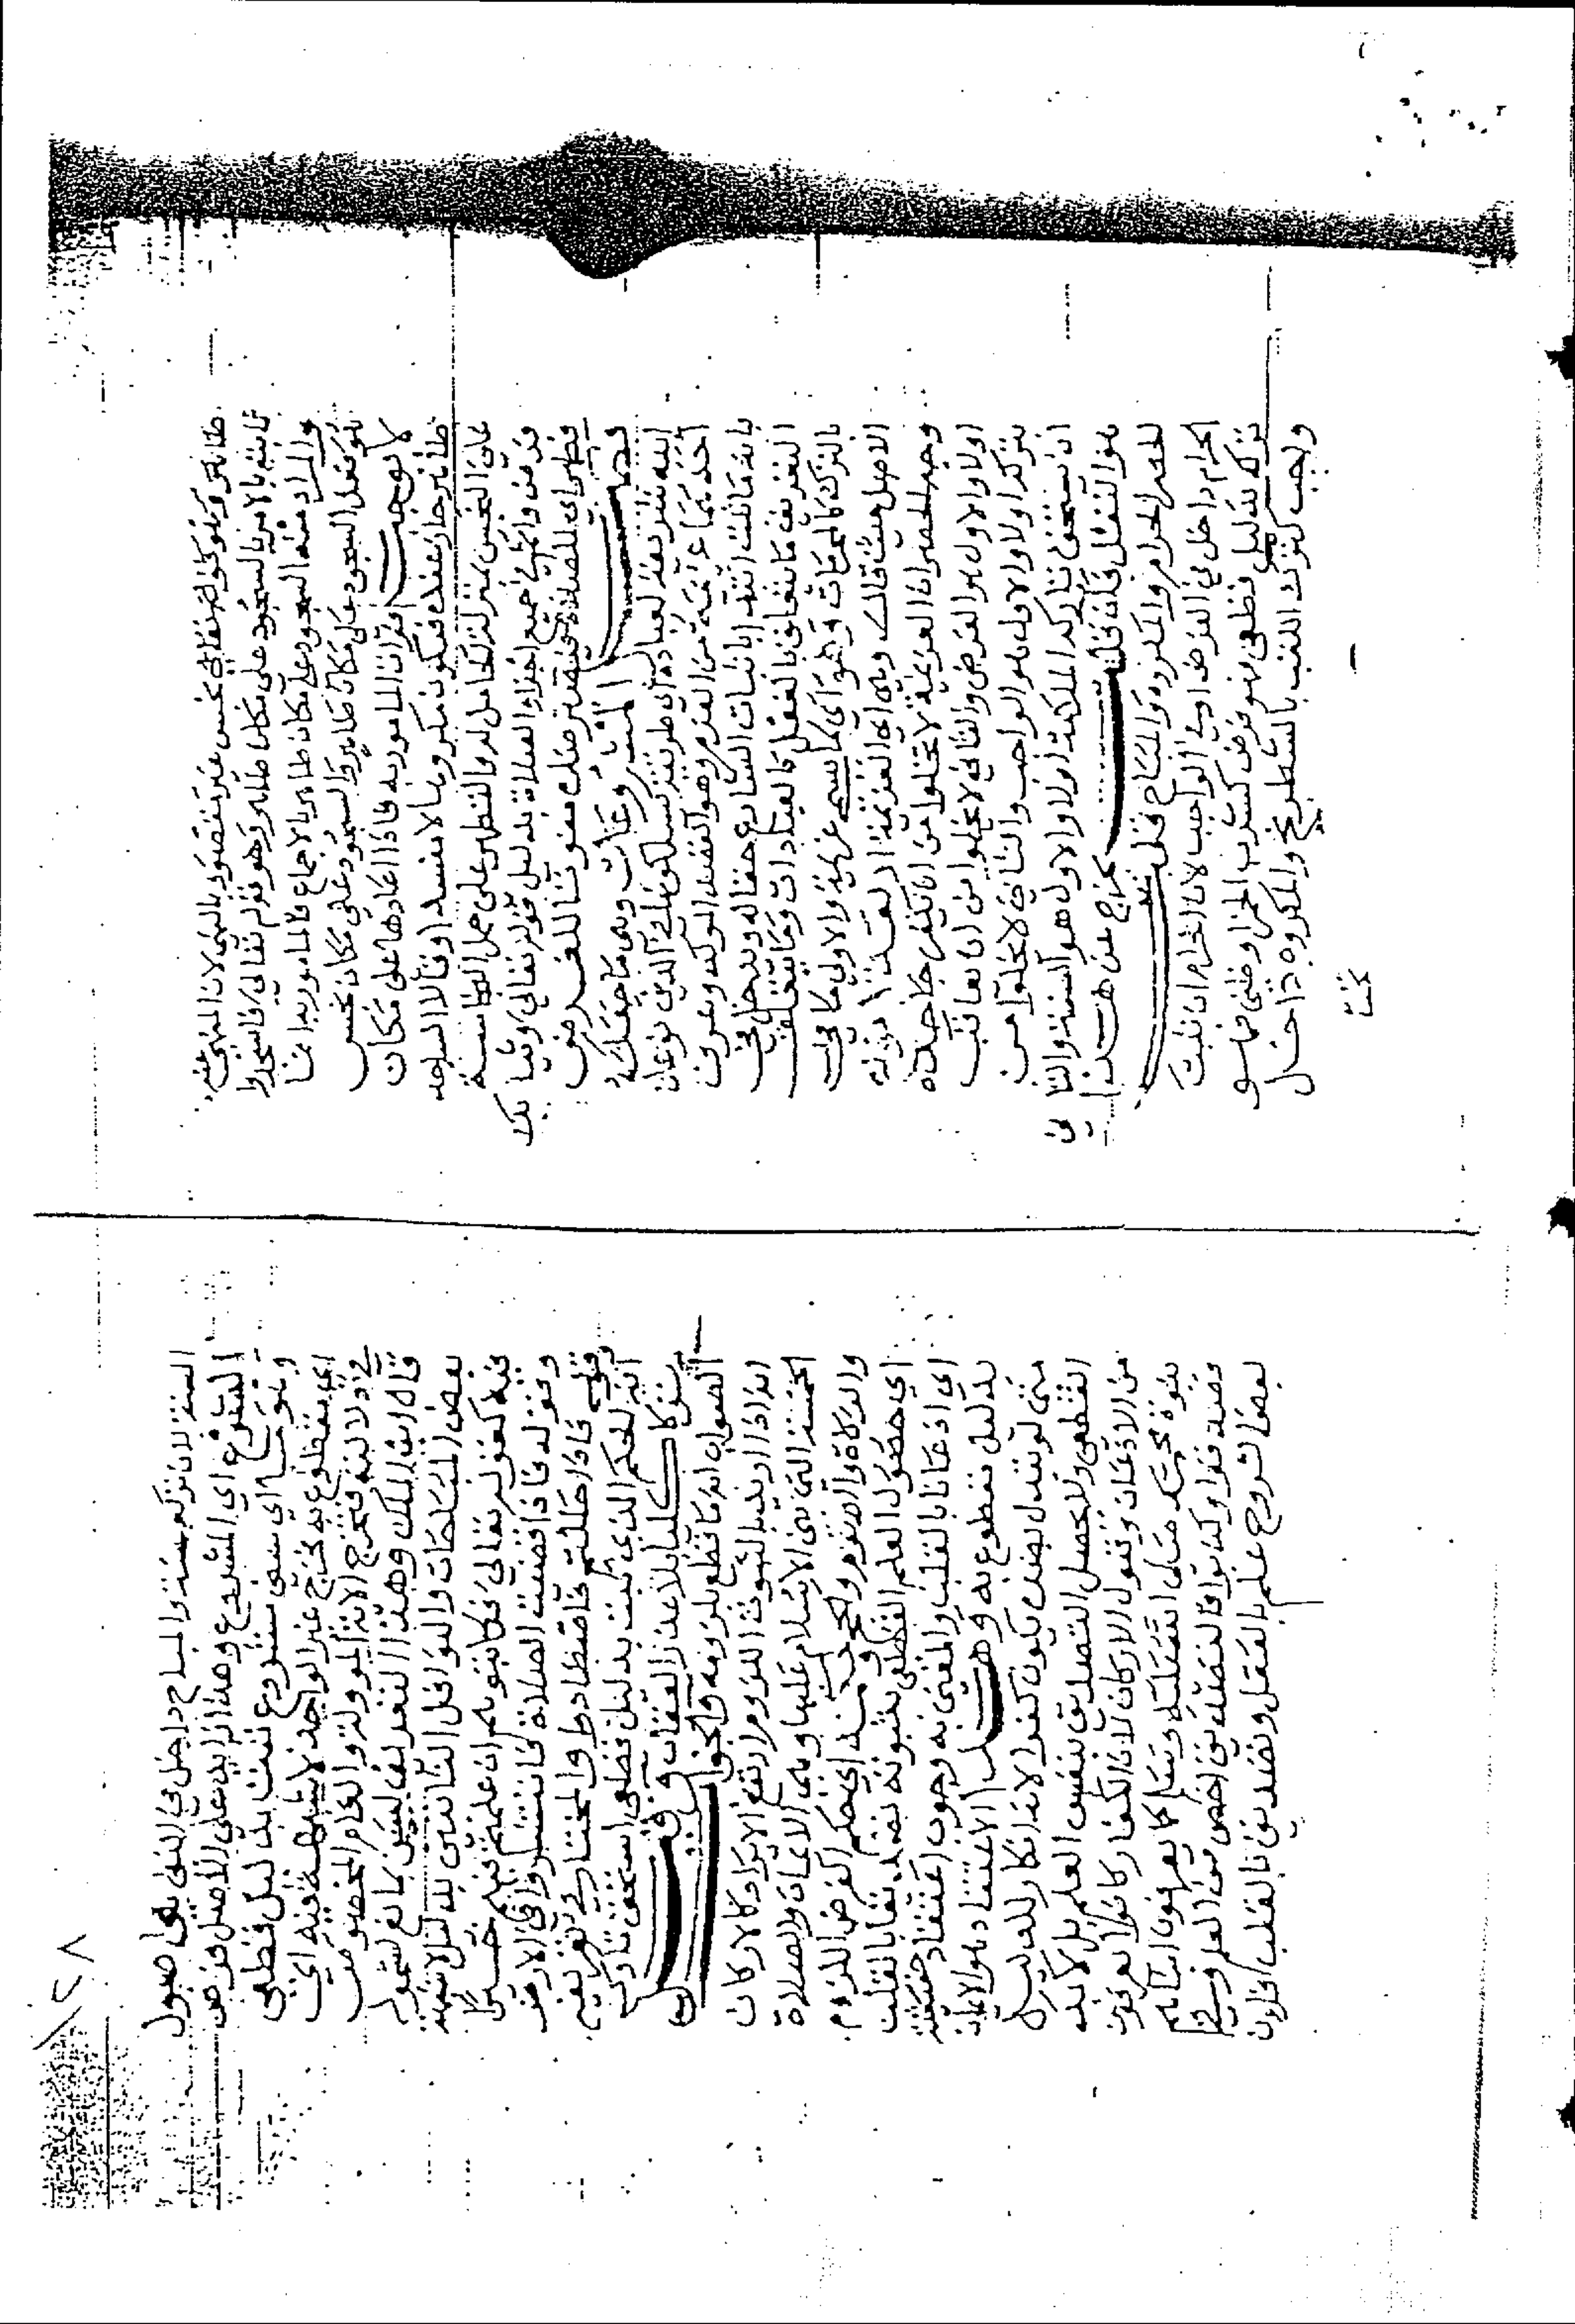 طاهر وهو كونه في مكان نجس غير مقصود بالنهي لان المنهي عنه
ثابتة بالامر بالسجود على مكان طاهر وهو قوله تعالى فاسجدوا
والمراد منه السجود على مكان طاهر بالاجماع فالمأمور به انما
هو فعل السجود على مكان طاهر والسجود على مكان نجس
لا يوجب افوات المأمور به فاذا اعادها على مكان
طاهر جاز عنده فيكون مكروها لا مفسدا وقالا الساجد
على النجس بمنزلة الحامل له والتطهر على حمل النجاسة
فرض دائم في جميع اجزاء الصلاة بدليل قوله تعالى وثيابك
فطهر اي للصلاة فيصير ضده مفوتا للفرض
فصل المشروعات وهي ما جعله
الله شريعة لعباده اي طريقة يسلكونها في الدين نوعان
احدهما عزيمة من العزم وهو القصد المؤكد وعرف
بانه ما ثبت ابتداء باثبات الشارع حقا له ويدخل في
التعريف ما يتعلق بالفعل كالعبادات وما يتعلق
بالترك كالمحرمات وهو اي ما سمي عزيمة والاولى ما في
الاصل حيث قال وهي اي العزيمة اربعة
وجه الحصر ان العزيمة لا تخلوا من ان يكفر جاحده
اولا والاول هو الفرض والثاني لا يخلوا من ان يعاقب
بتركه اولا والاول هو الواجب والثاني لا يخلوا من
ان يستحق تاركه الملامة اولا والاول هو السنة والثاني
هو النفل فان قلت يخرج عن هذا
الحصر الحرام والمكروه والمباح قلت
الحرام داخل في الفرض او في الواجب لان الحرام ان ثبت
تركه بدليل قطعي فهو فرض كشرب الخمر او ظني فهو
واجب كترك اللعب بالشطرنج والمكروه داخل
تحت
١٢٨
السنة لان تركه سنة والمباح داخل في النفل اصول
المشروع اي المشروع وهذا ازيد على الاصل فرض
وهو اي معنى مشروع ثبت بدليل قطعي
اي مقطوع به يخرج خبر الواحد لا شبهة فيه اي
في دلالته فتخرج الآية المؤولة والعام المخصوص
قال ابن الملك وهذا التعريف ليس بمانع لشموله
بعض المباحات والنوافل الثابتة بدليل لا شبهة
فيه كقوله تعالى فكاتبوهم ان علمتم فيهم خيرا
وقوله فاذا قضيت الصلاة فانتشروا في الارض
وقوله فاذا حللتم فاصطادوا والمختار في تعريفه
انه الحكم الذي ثبت بدليل قطعي استحق تاركه
تركا كليا بلا عذر العقاب
الصواب ان ما قطع بلزومه والجواب
انه اذا اريد بالثبوت اللزوم ارتفع الايراد كالاركان
الخمسة التي بني الاسلام عليها وهي الايمان والصلاة
والزكاة والصوم والحج وحكمه اي حكم الفرض اللزوم
اي حصول العلم القطعي بثبوته تصديقا بالقلب
اي اذعانا بالقلب والمعنى به وجوب اعتقاد حقيته
بدليل مقطوع به وهذا الاعتقاد هو الايمان
حتى لو تبدل بضده يكون كفرا لانه انكار للدليل
القطعي ولا يحصل التصديق بنفس العلم بل لا بد
من الاذعان وقبول الاركان لان الكفار كانوا يعرفون
نبوة محمد صلى الله عليه وسلم كما يعرفون ابناءهم
وصدقوا وكانوا فالتصديق اخص من العلم
بعض الشروح علم بالعقل وتصديق بالقلب اذ لا